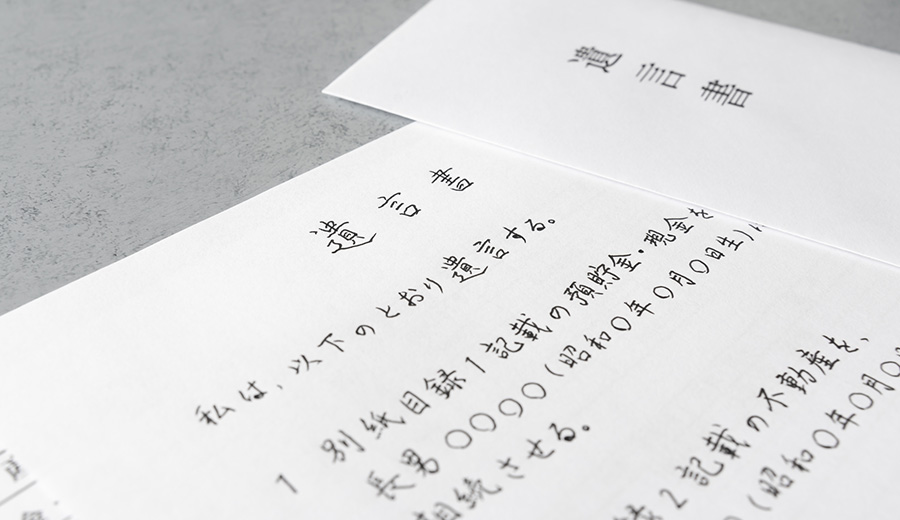 遺言書
遺言書
私は、以下のとおり遺言する。
1 別紙目録1記載の預貯金・現金を
長男〇〇〇〇(昭和〇年〇月〇日生)
相続させる。
録2記載の不動産を、
(昭和〇年〇月〇